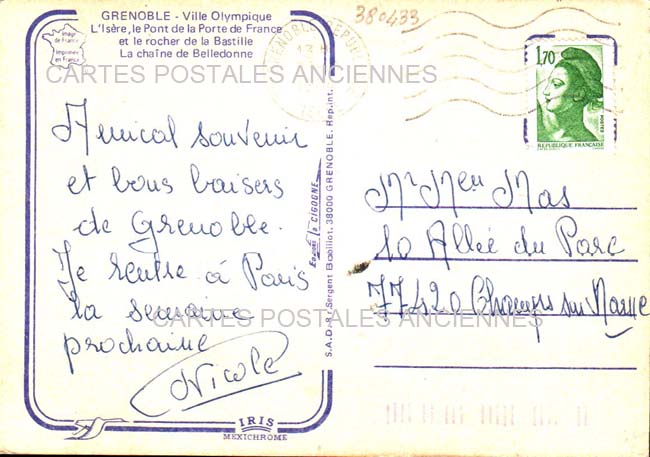 GRENOBLE - Ville Olympique
L'Isère, le Pont de la Porte de France
et le rocher de la Bastille
La chaîne de Belledonne
Image de France
Imprimée en France
380433
1,70
POSTES
REPUBLIQUE FRANÇAISE
CARTES POSTALES ANCIENNES
Amical souvenir
et bons baisers
de Grenoble.
Je rentre à Paris
la semaine
prochaine
Nicole
Editions La CIGOGNE
S.A.D. - 8, r. Sergent Bobillot, 38000 GRENOBLE. Rep. Int.
Mr Mme Mas
10 Allée du Parc
77420 Champs sur Marne
CARTES POSTALES ANCIENNES
IRIS
MEXICHROME